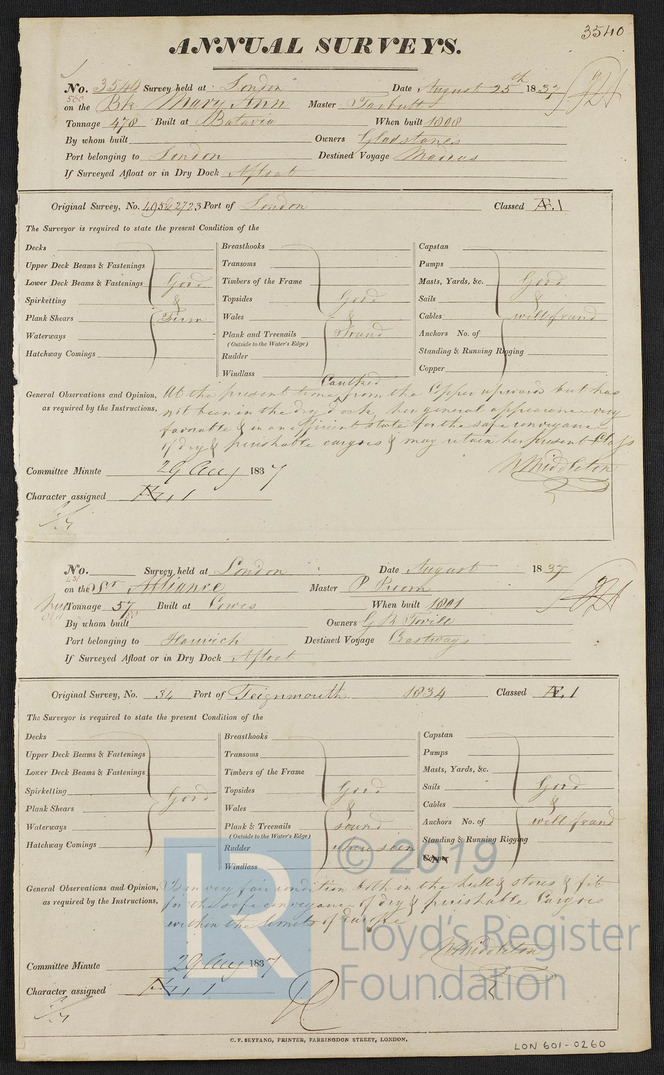 3540
ANNUAL SURVEYS.
No. 3540 Survey held at London Date August 25th 1837
on the Bk Mary Ann Master Tarbutt
Tonnage 478 Built at Batavia When built 1808
By whom built Owners Gladstones
Port belonging to London Destined Voyage
If Surveyed Afloat or in Dry Dock Afloat
Original Survey, No. 2723 Port of London Classed Æ.1
The Surveyor is required to state the present Condition of the
Decks
Upper Deck Beams & Fastenings
Lower Deck Beams & Fastenings Good
Spirketting &
Plank Shears Firm
Waterways
Hatchway Comings
Breasthooks
Transoms
Timbers of the Frame
Topsides Good
Wales &
Plank and Treenails Sound
(Outside to the Water's Edge)
Rudder
Windlass
Capstan
Pumps
Masts, Yards, &c. Good
Sails &
Cables well found
Anchors No. of
Standing & Running Rigging
Copper
General Observations and Opinion, as required by the Instructions,
Caulked
At the present time from the Copper upwards but has
not been in the dry dock, her general appearance very
favorable & in an efficient state for the safe conveyance
of dry & perishable cargoes & may retain her present Class
W Middleton
Committee Minute 29 Aug 1837
Character assigned Æ 1
No. Survey held at London Date August 1837
on the Sr Alliance Master P
Tonnage 57 Built at Cowes When built 1801
By whom built Owners
Port belonging to Harwich Destined Voyage Coastways
If Surveyed Afloat or in Dry Dock Afloat
Original Survey, No. 34 Port of Teignmouth 1834 Classed Æ 1
The Surveyor is required to state the present Condition of the
Decks
Upper Deck Beams & Fastenings
Lower Deck Beams & Fastenings
Spirketting
Plank Shears Good
Waterways
Hatchway Comings
Breasthooks
Transoms
Timbers of the Frame
Topsides Good
Wales &
Plank & Treenails sound
(Outside to the Water's Edge)
Rudder where seen
Windlass
Capstan
Pumps
Masts, Yards, &c.
Sails Good
Cables &
Anchors No. of well found
Standing & Running Rigging
General Observations and Opinion, as required by the Instructions,
Is in very fair condition both in the hull & stores & fit
for the safe conveyance of dry & perishable Cargoes
within the limits of Europe
W Middleton
Committee Minute 29 Aug 1837
Character assigned Æ 1
C. F. SEYFANG, PRINTER, FARRINGDON STREET, LONDON.
LON 601-0260
LR
© 2019
Lloyd's Register
Foundation